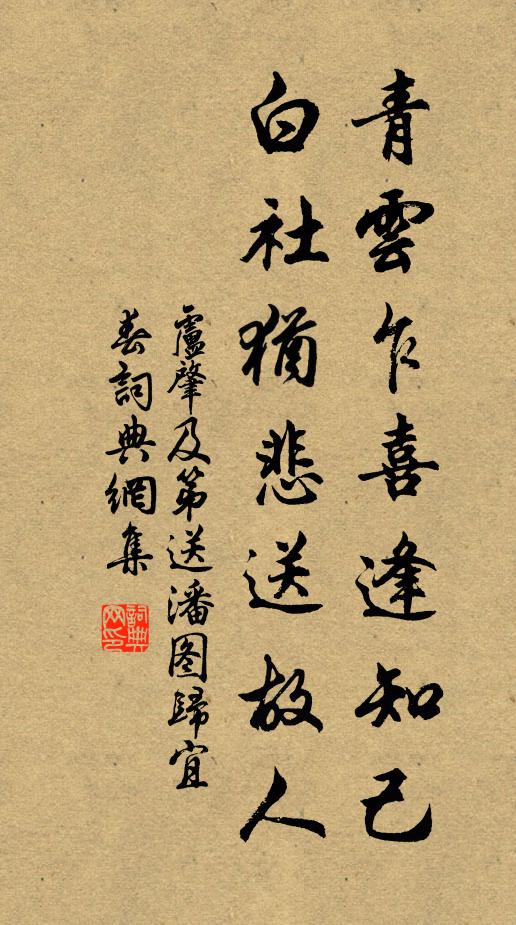 青雲乍喜逢知己
白社猶悲送故人
盧肇及第送潘圖歸宜
春詞典網集
詞典
网印